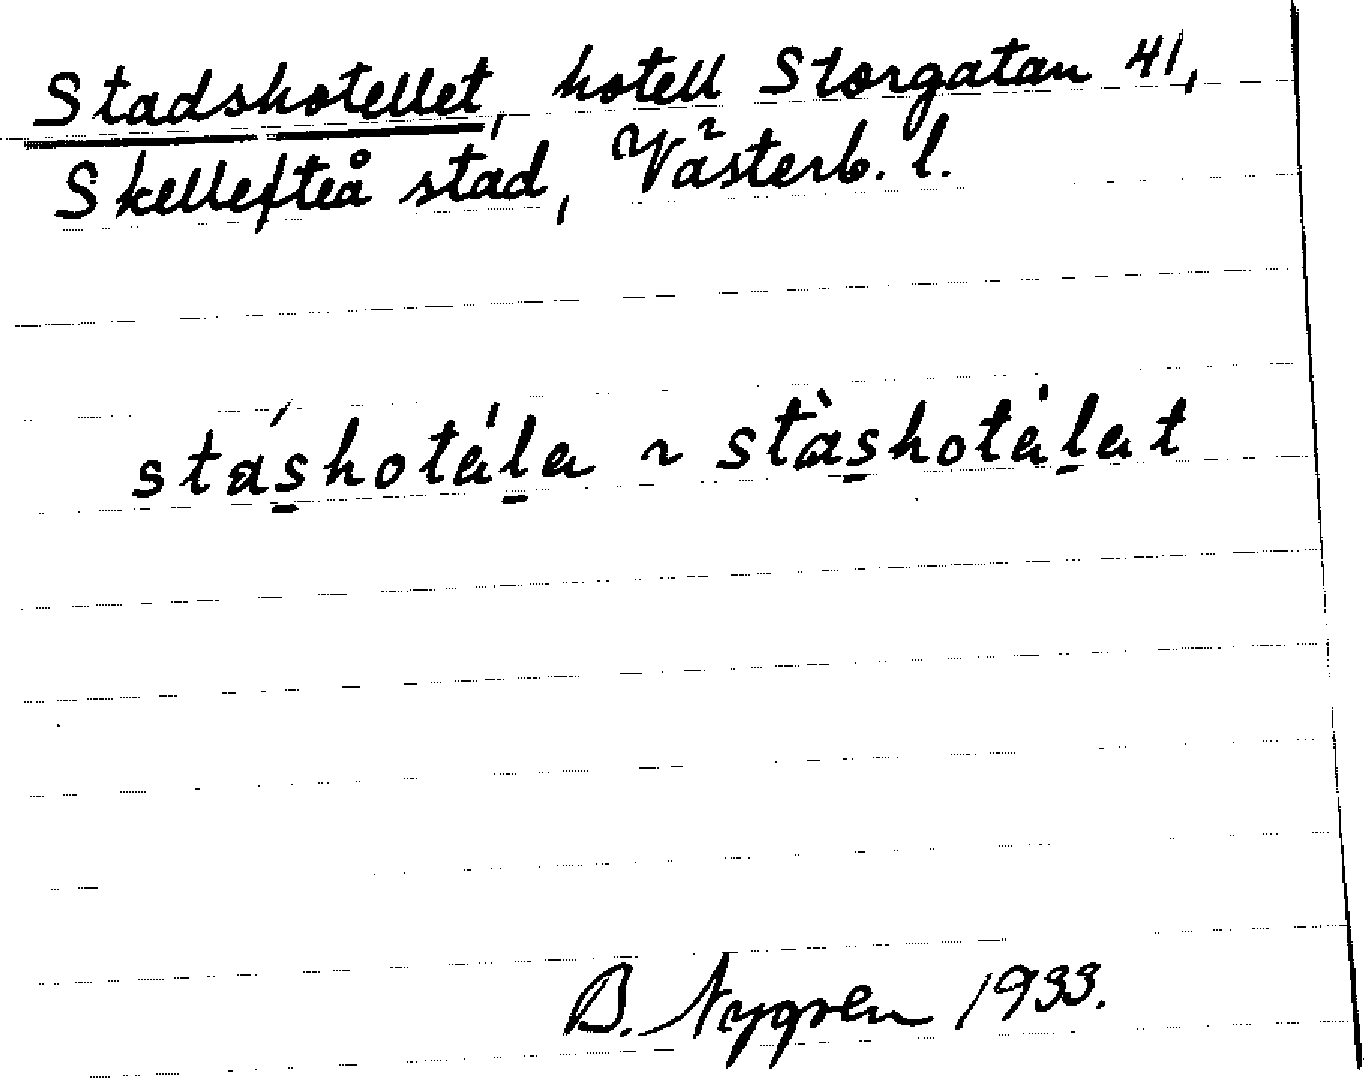 Stadshotellet, hotell Storgatan 41,
Skellefteå stad, Västerb. l.
stáshotä́la ~ stàshotä́lat
B. Nygren 1933.